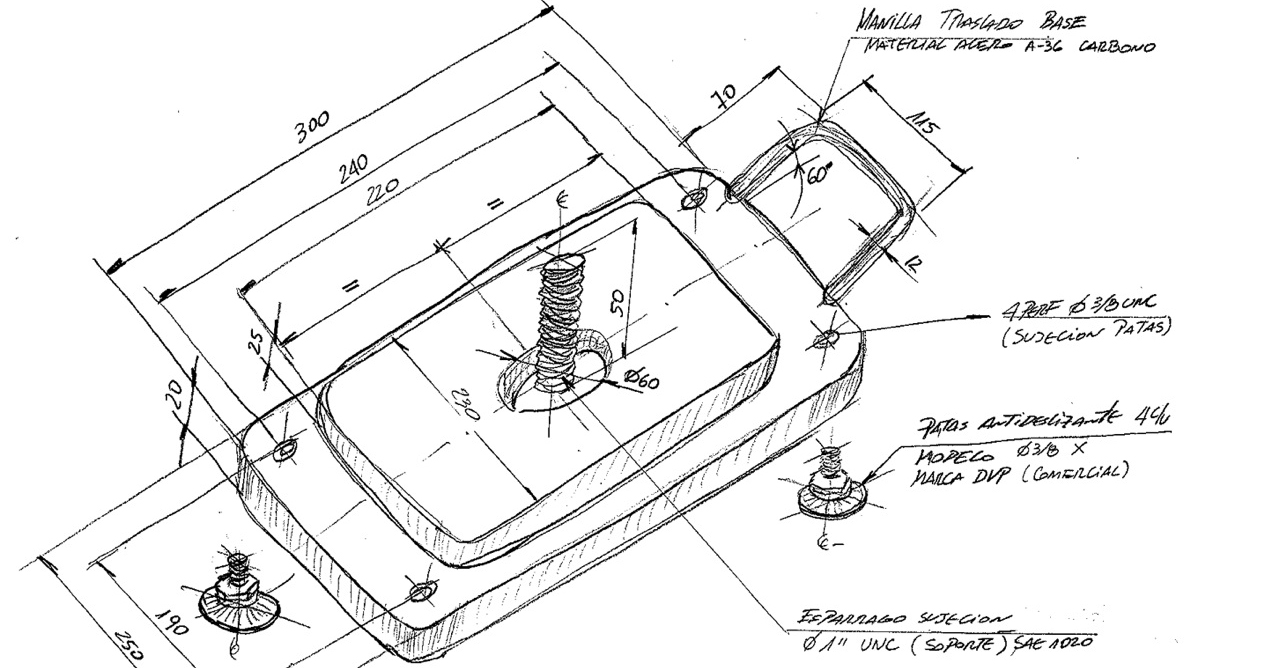 MANILLA TRASLADO BASE
MATERIAL ACERO A-36 CARBONO
300
240
220
=
=
70
115
60°
12
℄
50
25
20
Ø60
230
4 PERF Ø 3/8 UNC
(SUJECION PATAS)
PATAS ANTIDESLIZANTE 4 C/U
MODELO Ø3/8 X
MARCA DVP (COMERCIAL)
℄
190
250
℄
ESPARRAGO SUJECION
Ø 1" UNC (SOPORTE) SAE 1020